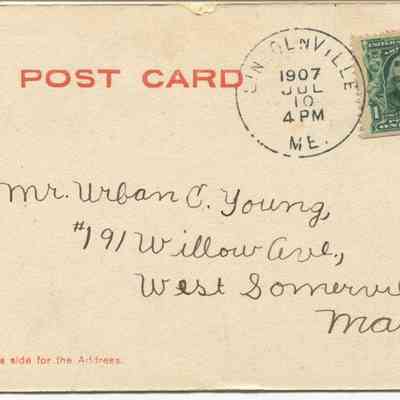 POST CARD
LINCOLNVILLE
1907
JUL
10
4 PM
ME.
Mr. Urban C. Young,
#191 Willow Ave.,
West Somervi
Ma
side for the Address.